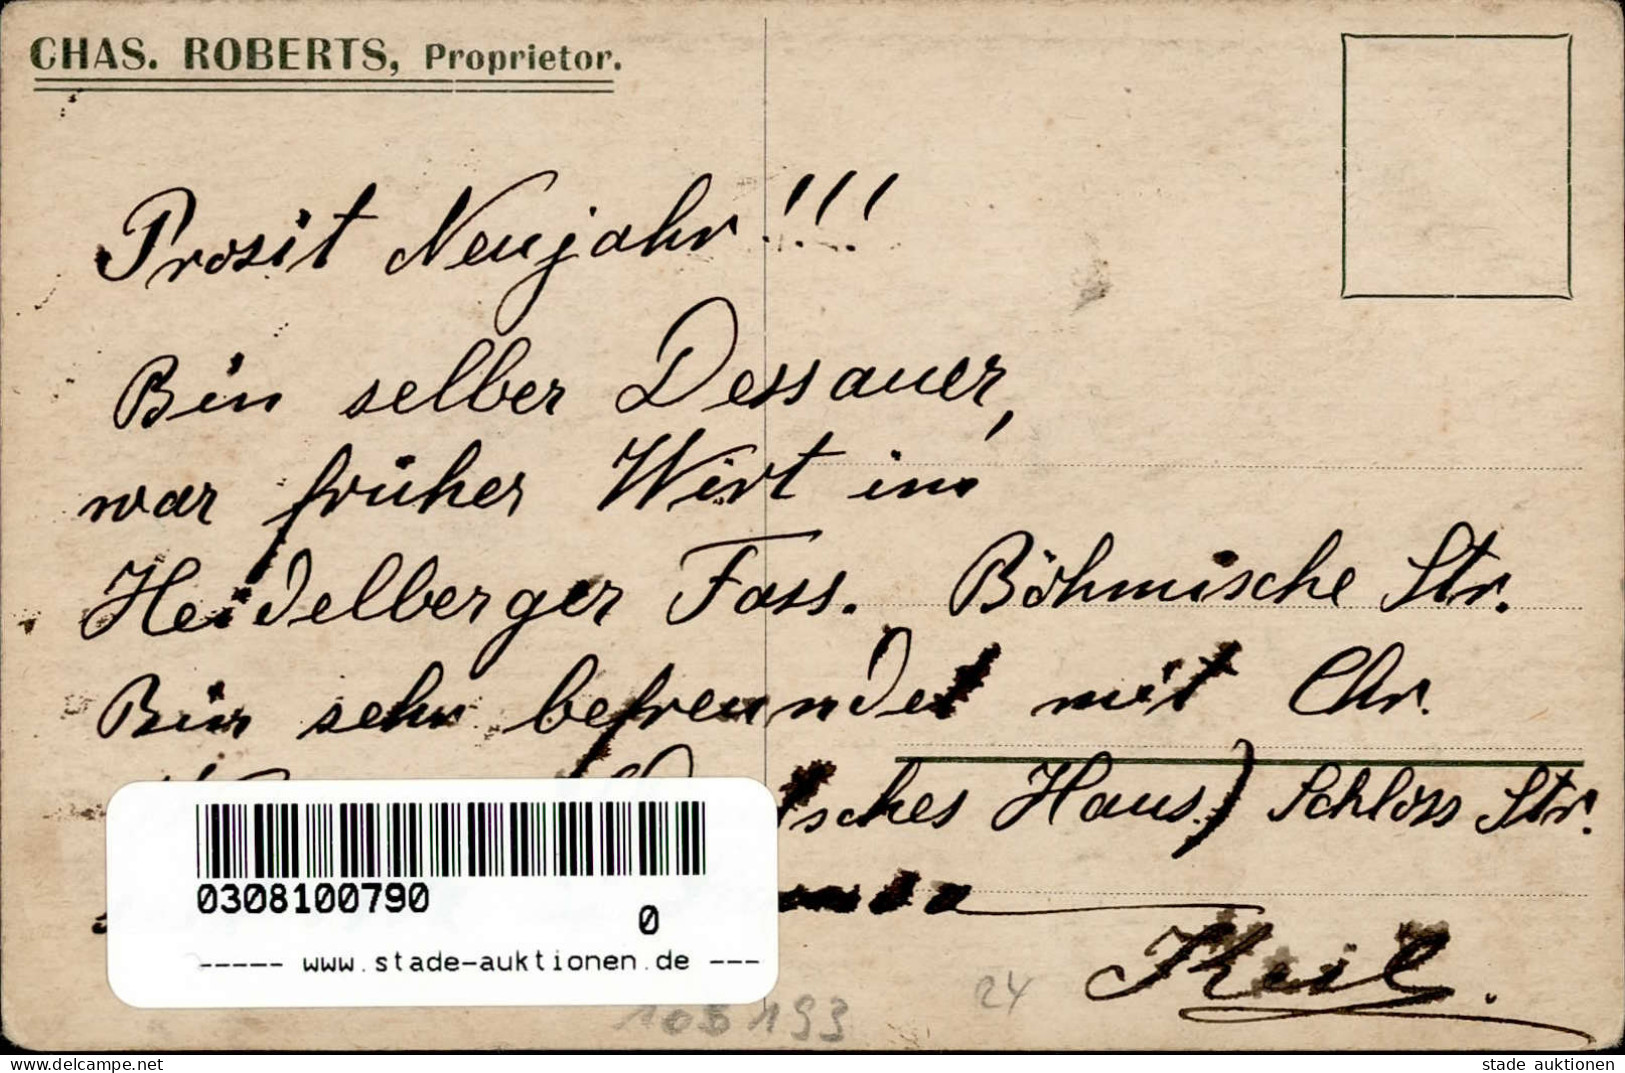 CHAS. ROBERTS, Proprietor.
Prosit Neujahr!!!
Bin selber Dessauer,
war früher Wirt im
Heidelberger Fass. Böhmische Str.
Bin sehr befreundet mit Chr.
sches Haus.) Schloss Str.
Keil.
0308100790
0
----- www.stade-auktionen.de ---
105193
24
stade auktionen